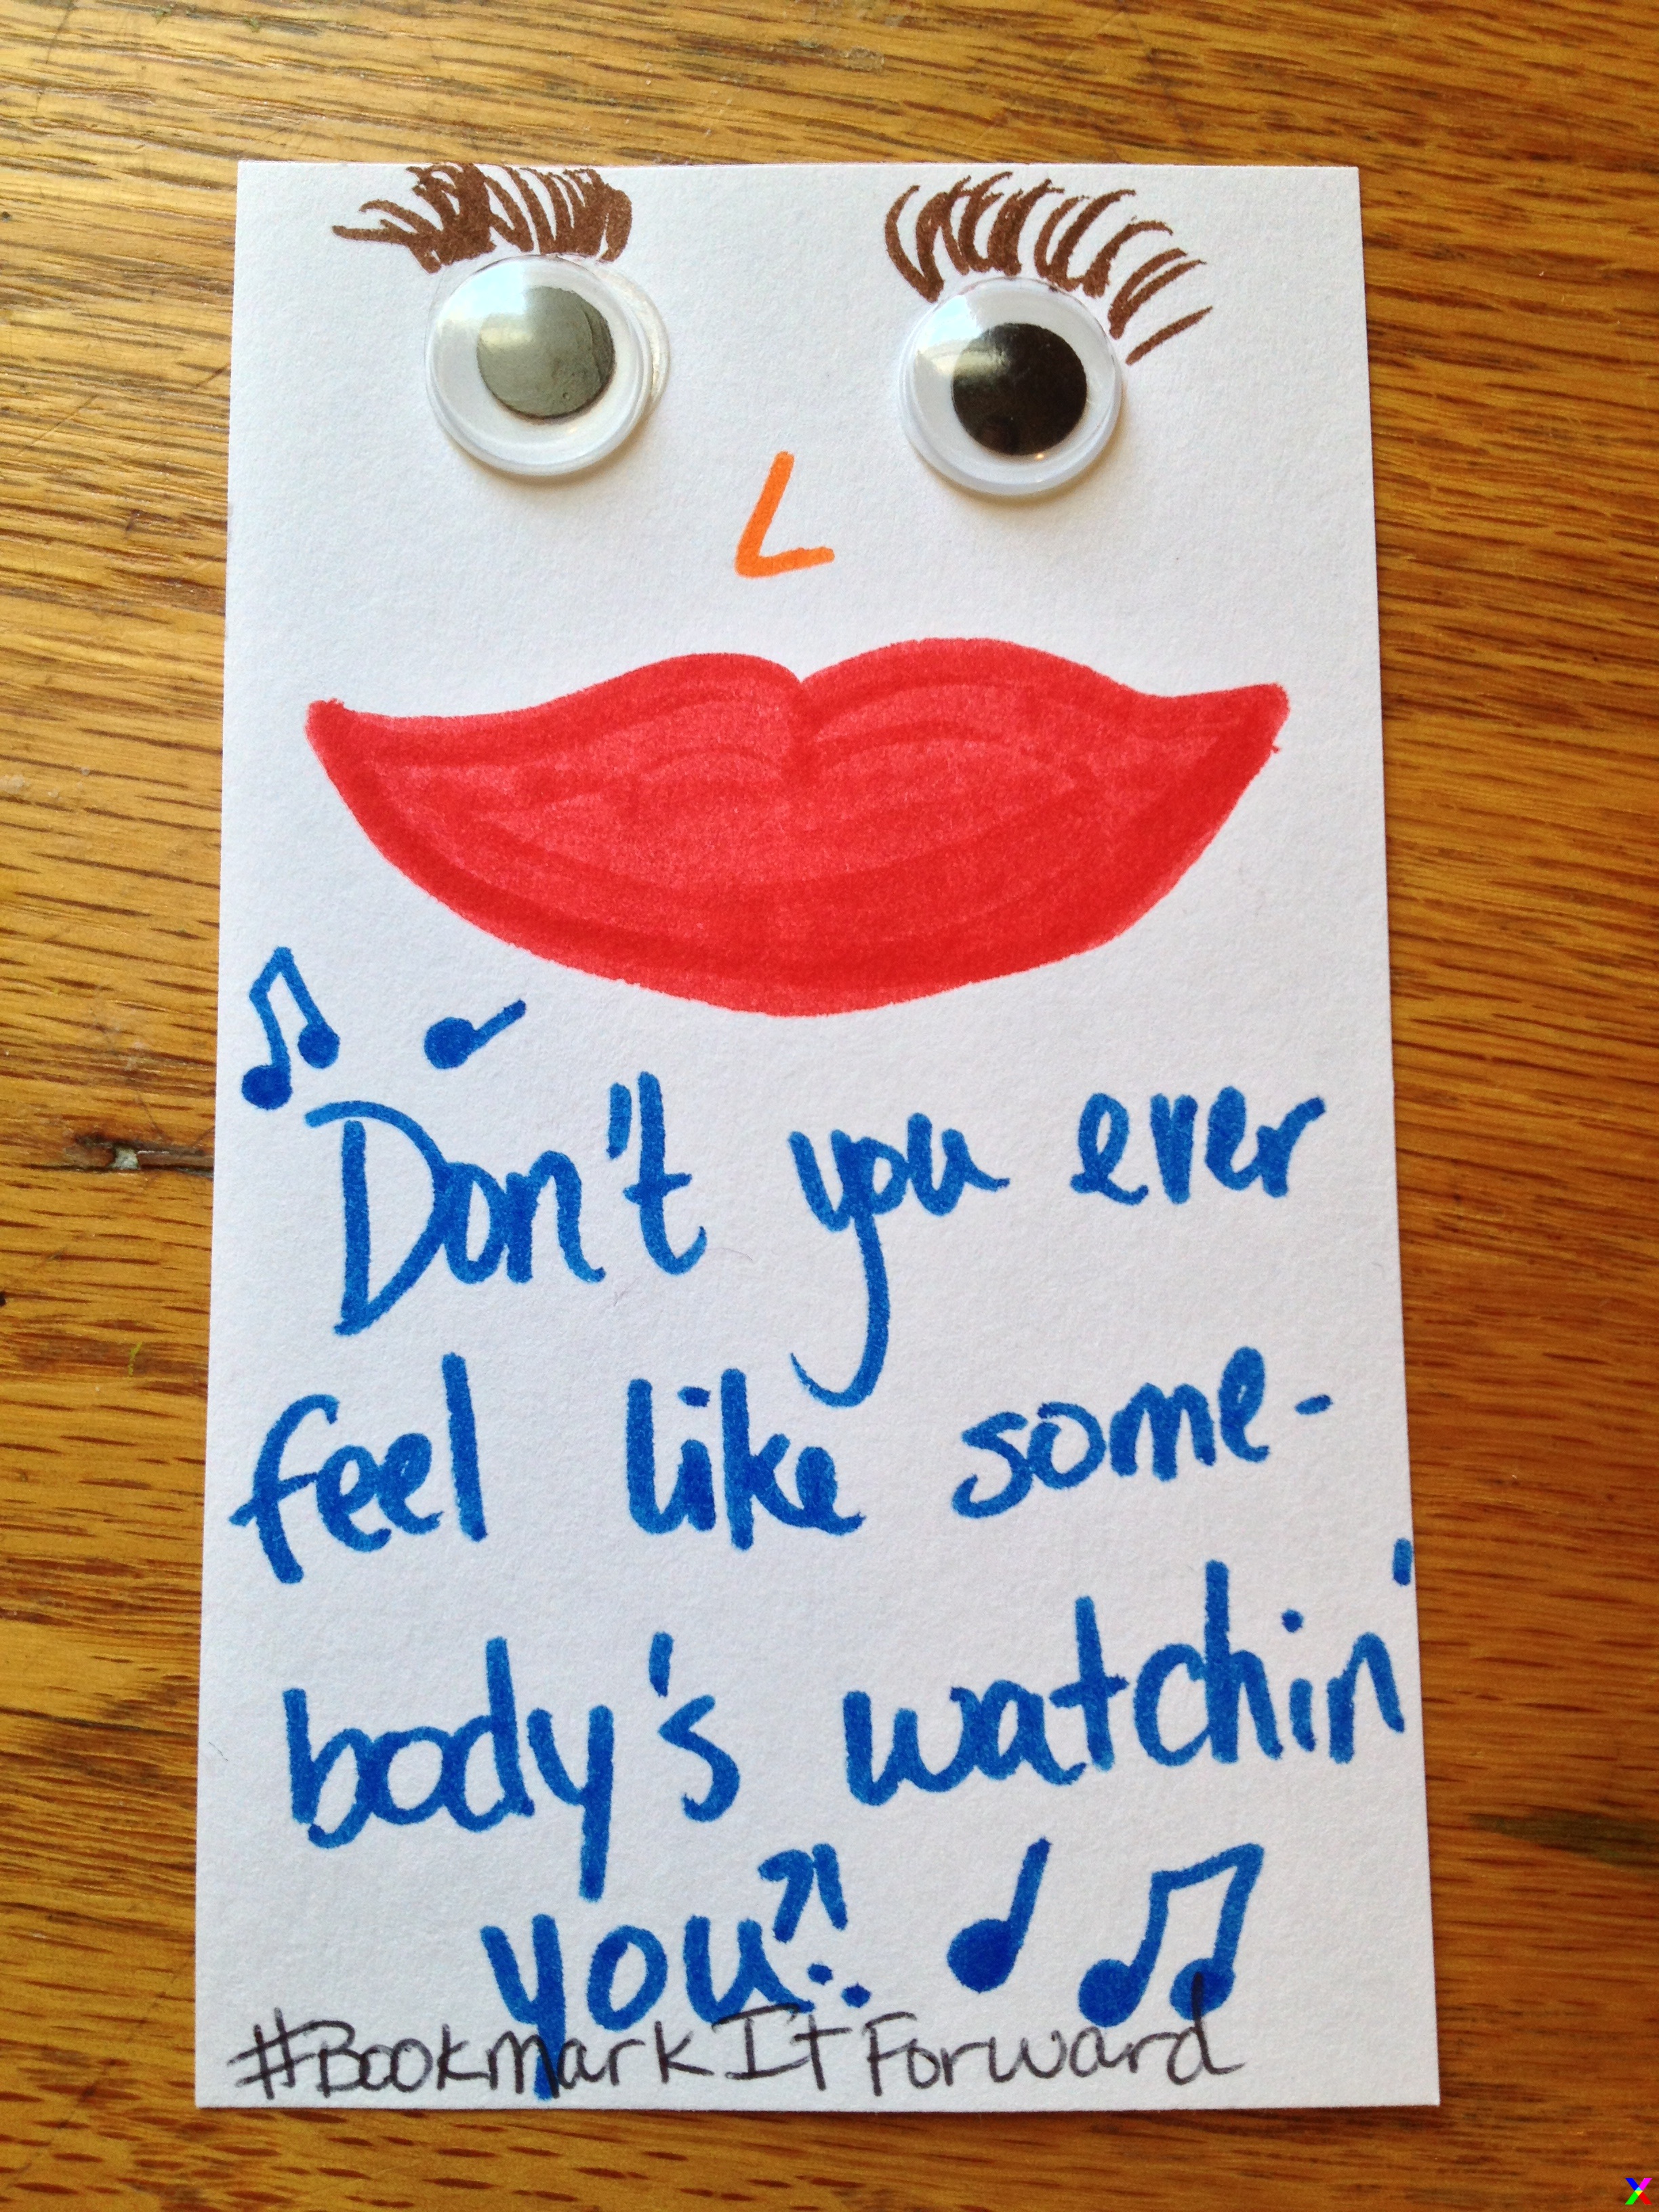 Don't you ever
feel like some-
body's watchin'
you?!
#BookmarkItForward